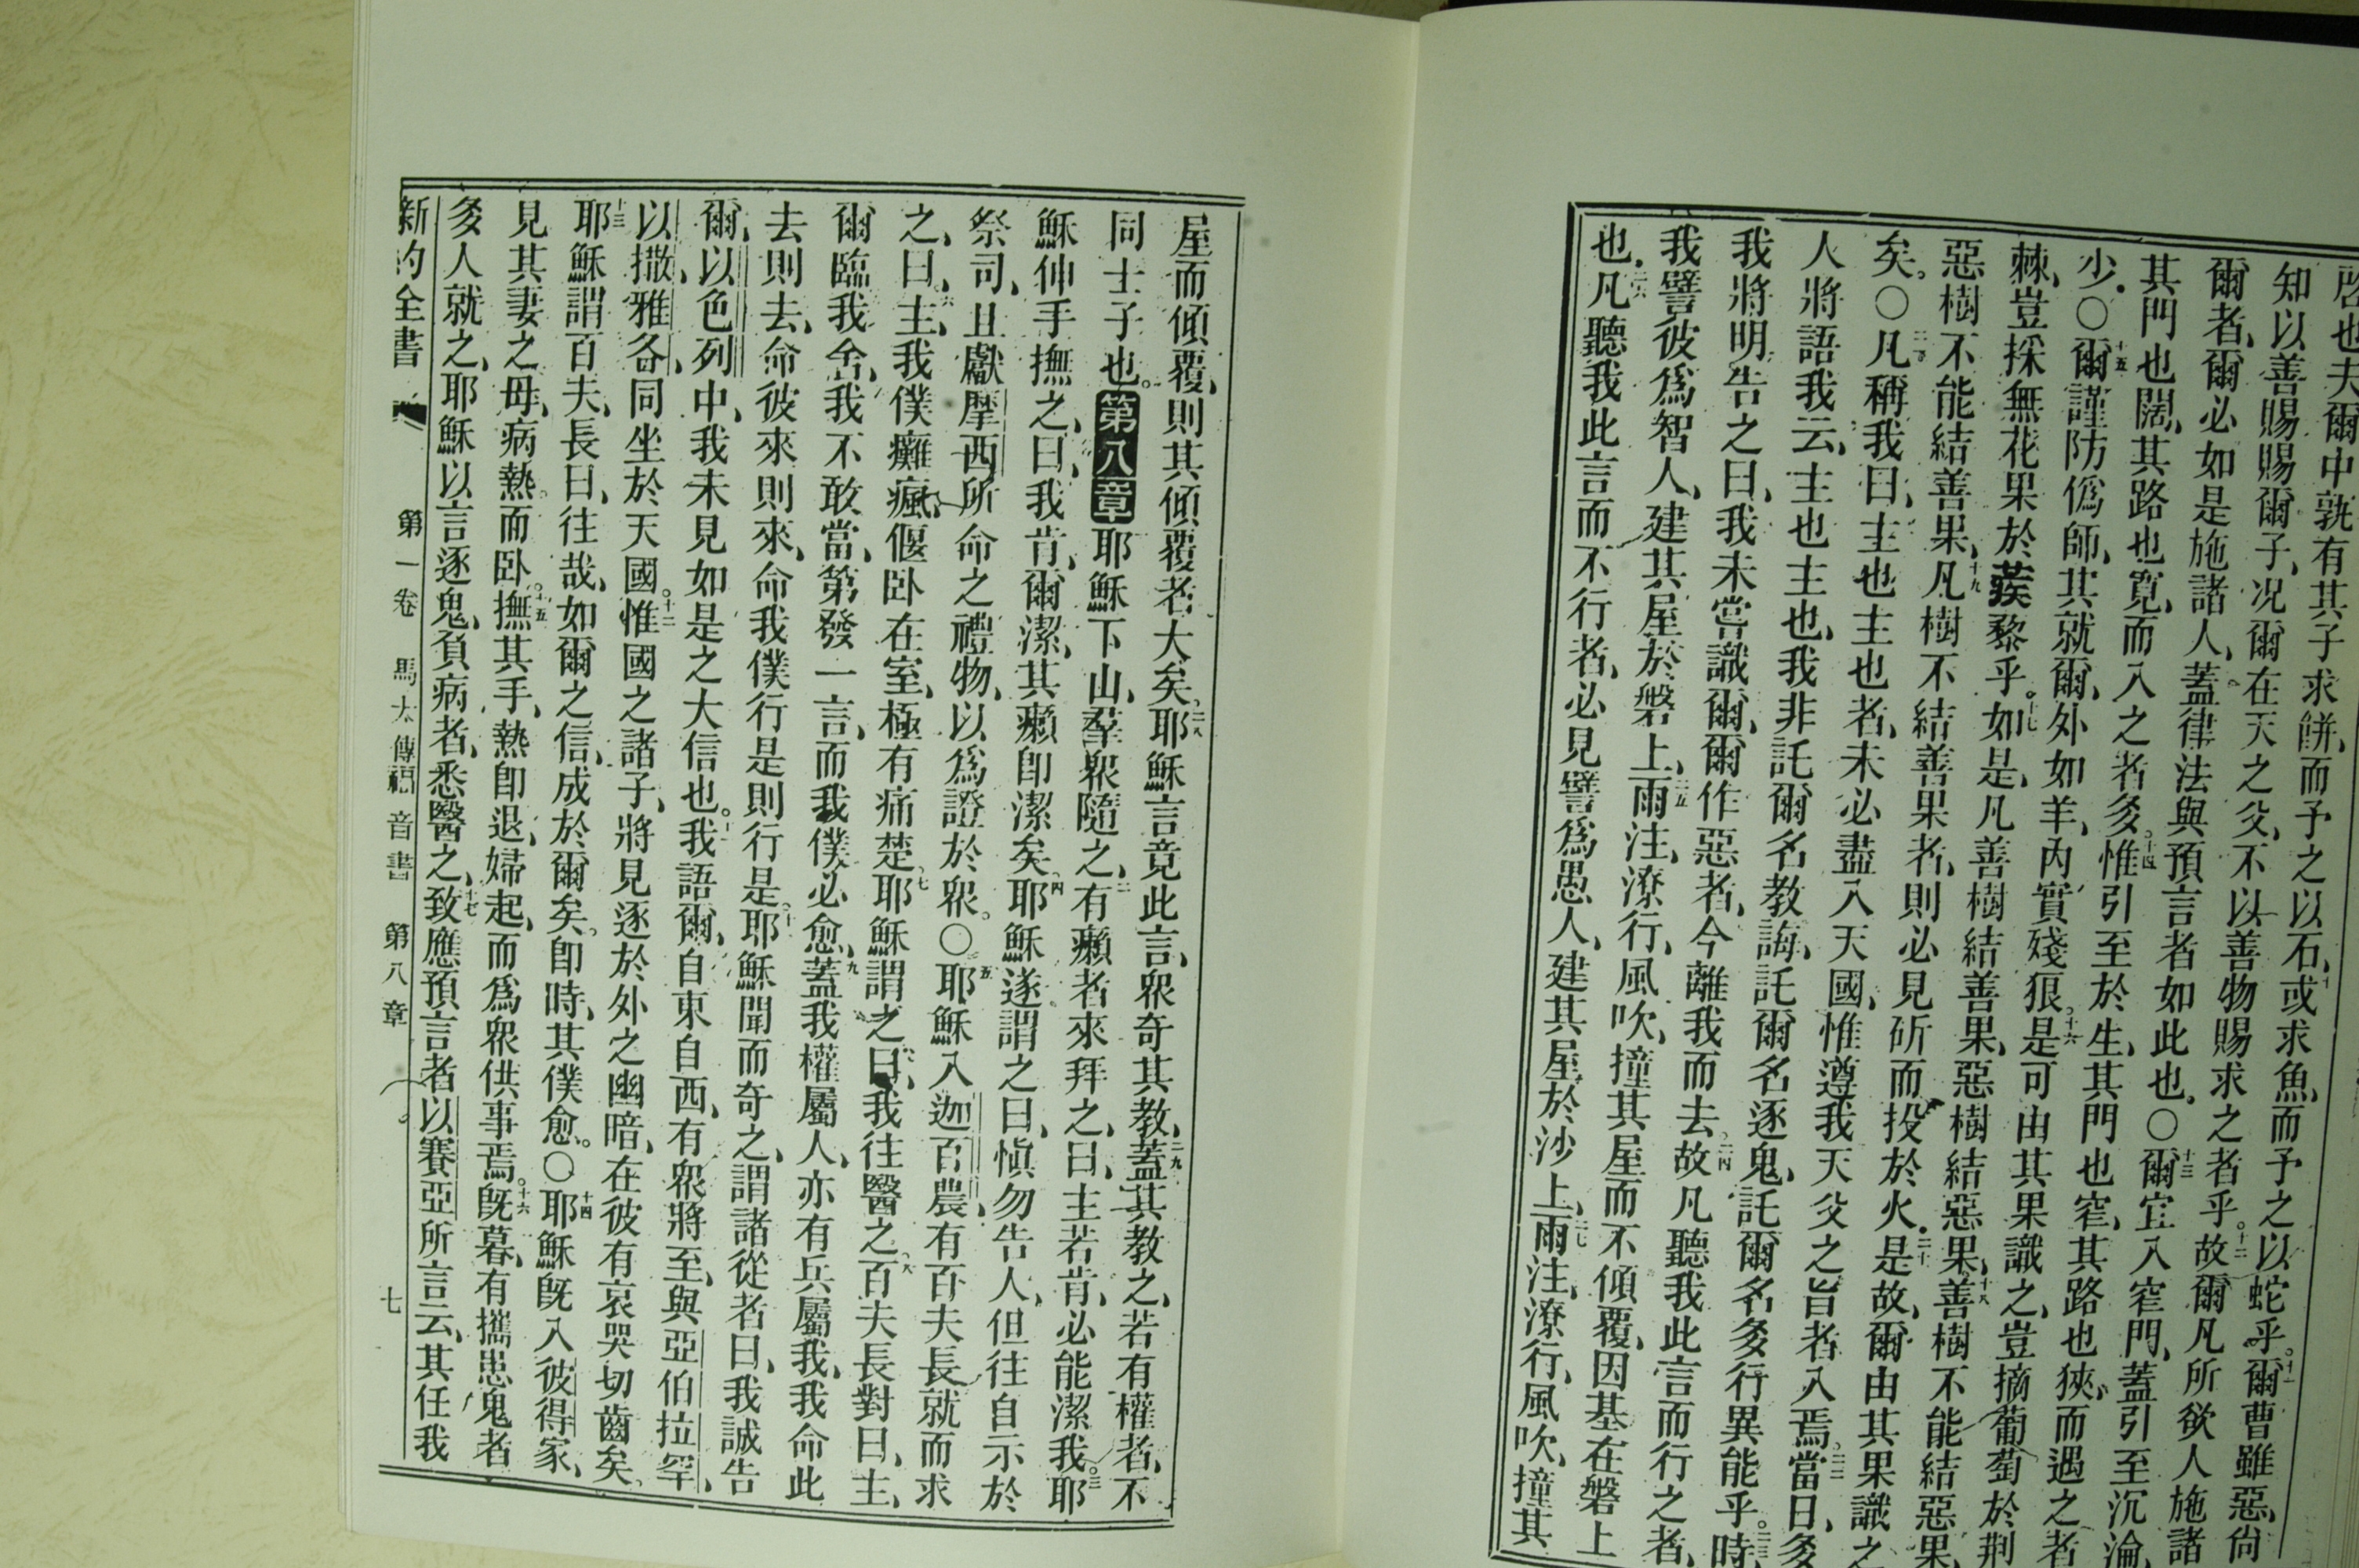 啓也夫爾中孰有其子求餅、而予之以石、或求魚、而予之以蛇乎。十一爾曹雖惡、尙
知以善賜賜爾子、況爾在天之父、不以善物賜求之者乎。十二故爾凡所欲人施諸
爾者、爾必如是施諸人、蓋律法與預言者如此也。〇十三爾宜入窄門、蓋引至沉淪、
其門也闊、其路也寬、而入之者多。十四惟引至於生、其門也窄、其路也狹、而遇之者
少。〇十五爾謹防僞師、其就爾、外如羊、內實殘狠。十六是可由其果識之、豈摘葡萄於荆
棘、豈採無花果於蒺藜乎。十七如是、凡善樹結善果、惡樹結惡果、十八善樹不能結惡果、
惡樹不能結善果、十九凡樹不結善果者、則必見斫而投於火。二十是故、爾由其果識之
矣。〇凡稱我曰、主也主也者、未必盡入天國、惟遵我天父之旨者入焉。二二當日、多
人將語我云、主也主也、我非託爾名教誨、託爾名逐鬼、託爾名多行異能乎。二三時、
我將明告之曰、我未嘗識爾、爾作惡者、今離我而去。二四故凡聽我此言而行之者、
我譬彼爲智人、建其屋於磐上、二五雨注、潦行、風吹、撞其屋而不傾覆、因基在磐上
也。二六凡聽我此言而不行者、必見譬爲愚人、建其屋於沙上、二七雨注、潦行、風吹、撞其
屋而傾覆、則其傾覆者大矣。二八耶穌言竟此言、衆奇其教、二九蓋其教之、若有權者、不
同士子也。第八章耶穌下山、羣衆隨之、二有癩者來拜之、曰、主若肯、必能潔我。三耶
穌伸手撫之、曰、我肯、爾潔、其癩卽潔矣。四耶穌遂謂之曰、愼勿告人、但往自示於
祭司、且獻摩西所命之禮物、以爲證於衆。〇五耶穌入迦百農、有百夫長就而求
之、曰、六主、我僕癱瘋、偃臥在室、極有痛楚。七耶穌謂之曰、我往醫之。八百夫長對曰、主、
爾臨我舍、我不敢當、第發一言、而我僕必愈、九蓋我權屬人、亦有兵屬我、我命此
去則去、命彼來則來、命我僕行是則行是。十耶穌聞而奇之、謂諸從者曰、我誠告
爾、以色列中、我未見如是之大信也。十一我語爾、自東自西、有衆將至、與亞伯拉罕、
以撒、雅各、同坐於天國。十二惟國之諸子、將見逐於外之幽暗、在彼有哀哭切齒矣。
十三耶穌謂百夫長曰、往哉、如爾之信、成於爾矣。卽時、其僕愈。〇十四耶穌旣入彼得家、
見其妻之母、病熱而臥。十五撫其手、熱卽退、婦起、而爲衆供事焉。十六旣暮、有攜患鬼者
多人就之、耶穌以言逐鬼、負病者、悉醫之、十七致應預言者以賽亞所言云、其任我
新約全書 第一卷 馬太傳福音書 第八章 七